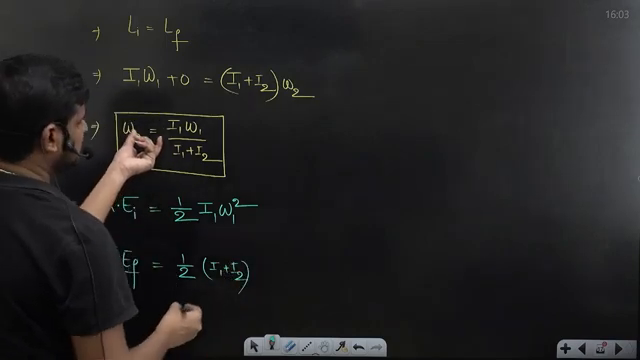 16:03
⇒ L₁ = L_f
⇒ I₁ω₁ + 0 = (I₁+I₂)ω₂
⇒ ω = I₁ω₁ / I₁+I₂
. E_i = 1/2 I₁ω₁²
E_f = 1/2 (I₁+I₂)